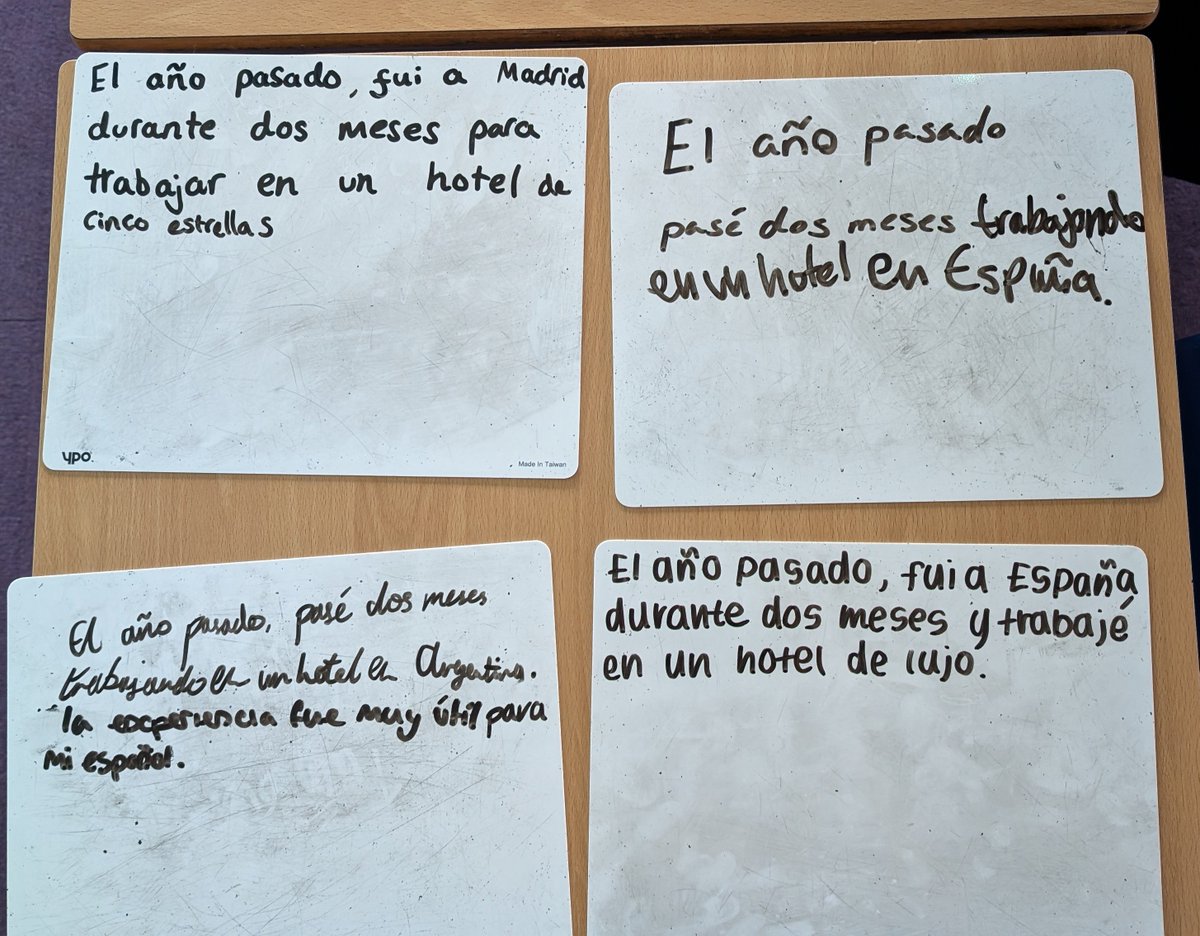 El año pasado, fui a Madrid
durante dos meses para
trabajar en un hotel de
cinco estrellas
ypo.
Made In Taiwan
El año pasado
pasé dos meses trabajando
en un hotel en España.
El año pasado, pasé dos meses
trabajando en un hotel en Argentina.
la experiencia fue muy útil para
mi español.
El año pasado, fui a España
durante dos meses y trabajé
en un hotel de lujo.